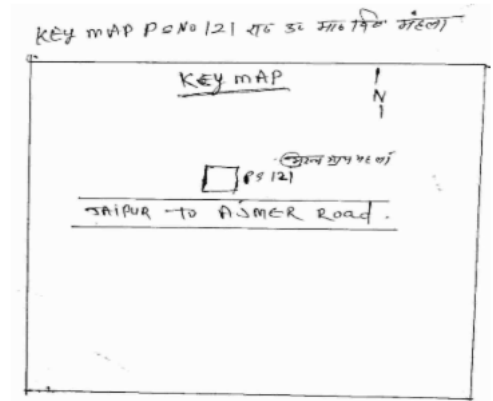 KEY MAP PS NO 121 रा० उ० मा० वि० महला
KEY MAP
N
PS 121
JAIPUR TO AJMER Road.